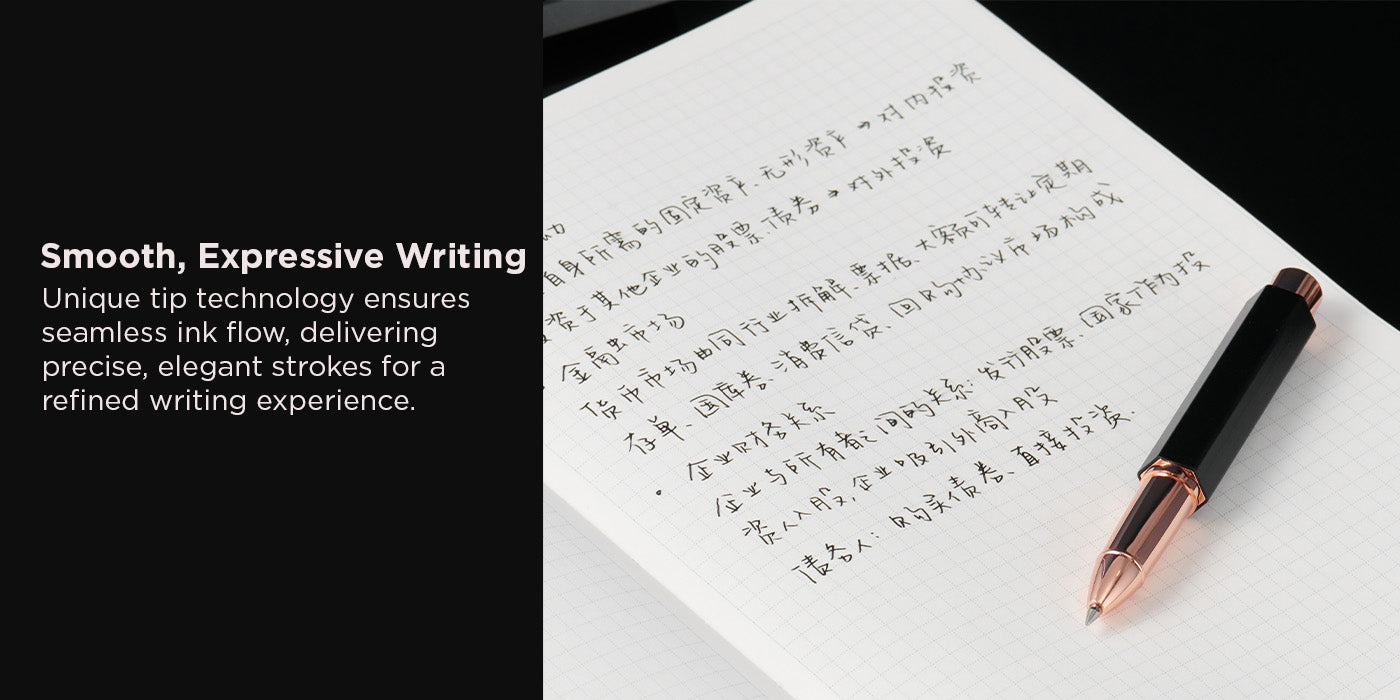 Smooth, Expressive Writing
Unique tip technology ensures
seamless ink flow, delivering
precise, elegant strokes for a
refined writing experience.
自身所需的固定资产、无形资产→对内投资
资于其他企业的股票、债券→对外投资
金融市场
货币市场由同行业拆解、票据、大额可转让定期
存单、国库券、消费信贷、回购协议市场构成
· 企业财务关系
企业与所有者之间的关系:发行股票、国家作为投
资人入股,企业吸引外商入股
债务人:购买债券、直接投资.